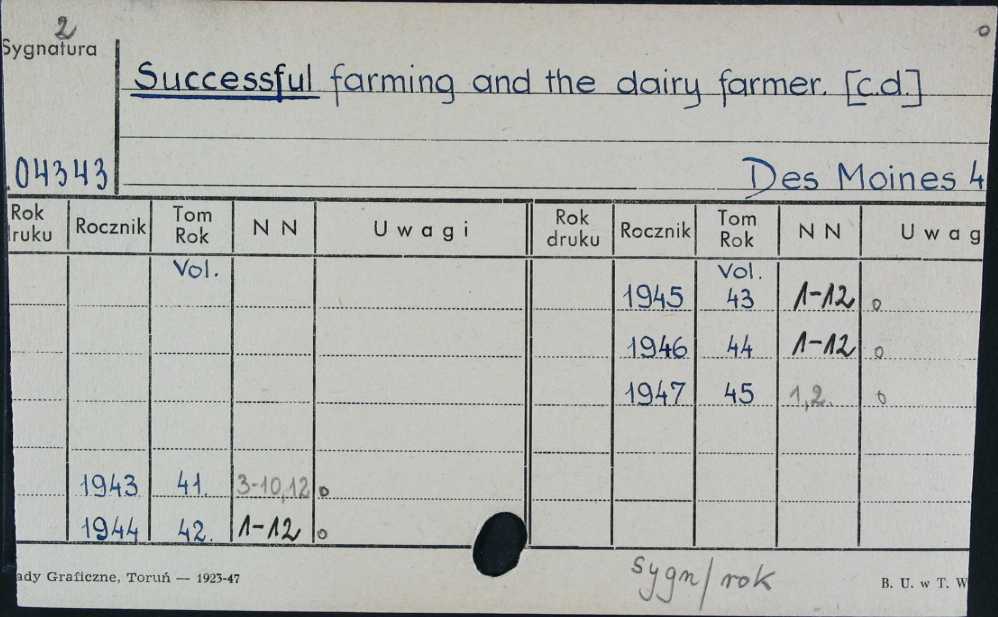 2
Sygnatura
Successful farming and the dairy farmer. [c.d.]
04343
Des Moines 4
Rok druku Rocznik Tom Rok N N Uwagi Rok druku Rocznik Tom Rok N N Uwag
Vol. Vol.
1945 43 1-12 o
1946 44 1-12 o
1947 45 1,2. o
1943 41. 3-10,12 o
1944 42. 1-12 o
ady Graficzne, Toruń — 1923-47
sygn/rok
B. U. w T. W